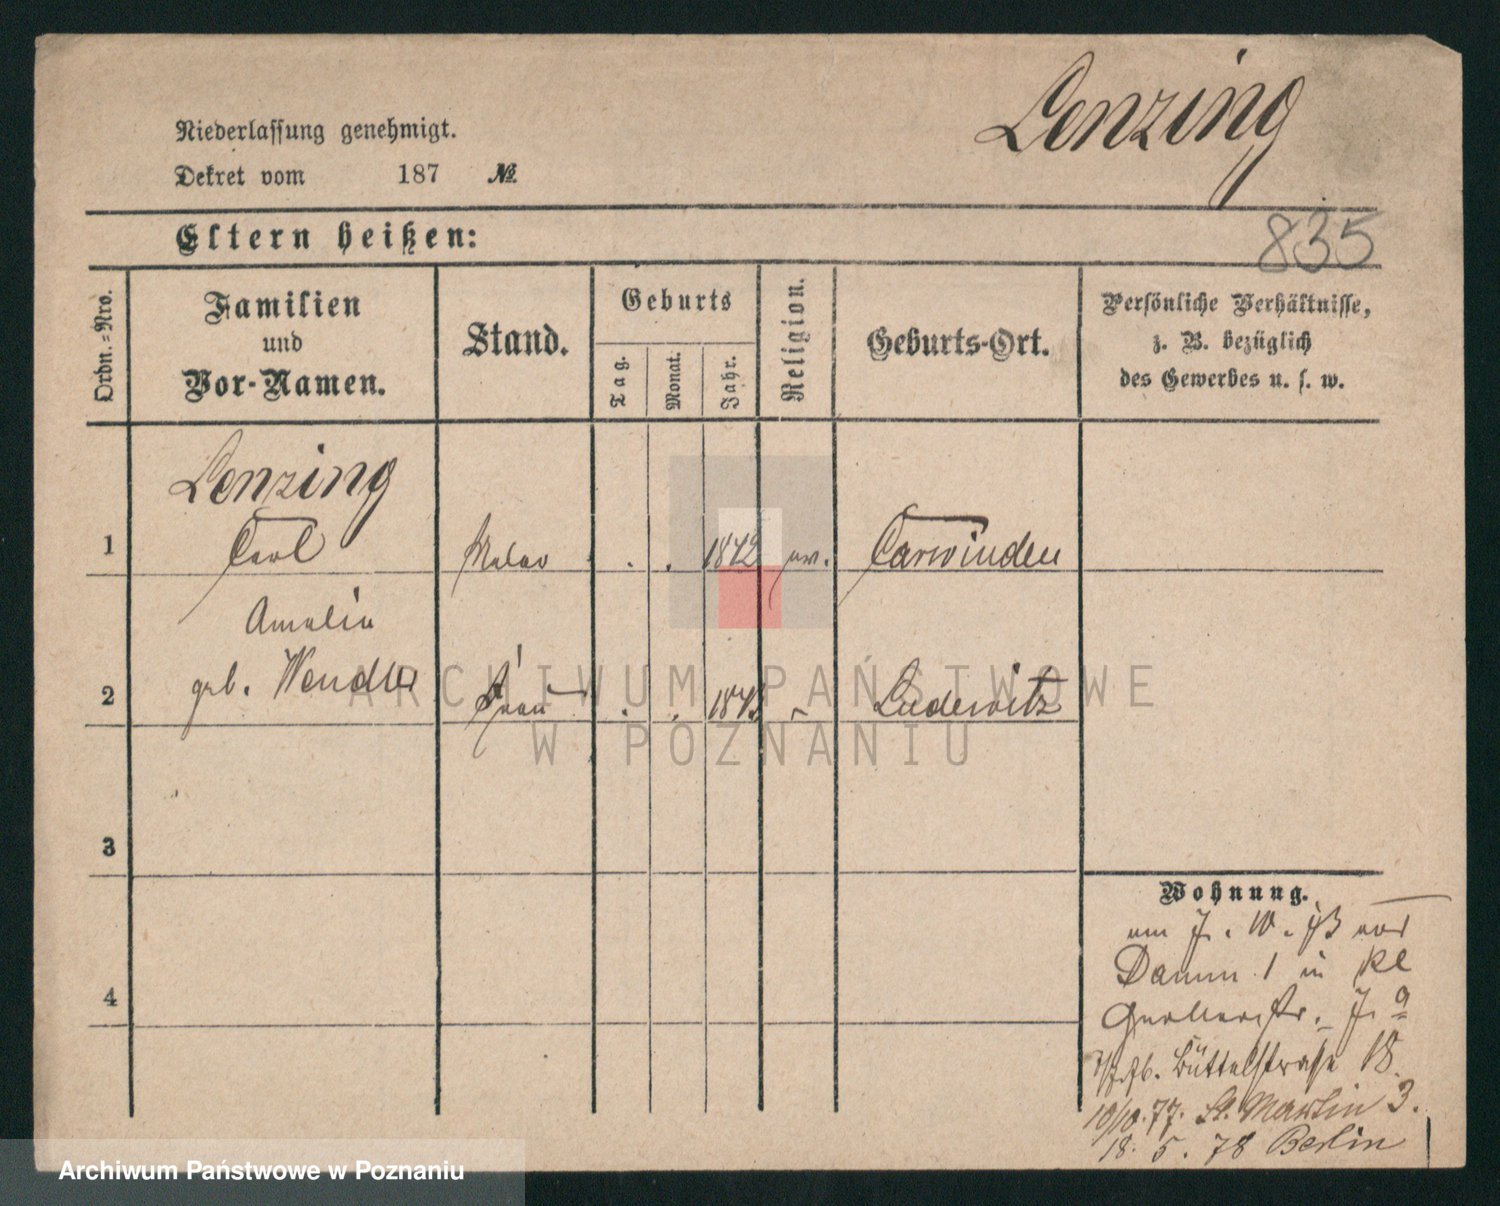 Lenzing
Niederlassung genehmigt.
Dekret vom 187 №
835
Eltern heißen:
Ordn.-Nro.
Familien
und
Vor-Namen.
Stand.
Geburts
Tag.
Monat.
Jahr.
Religion.
Geburts-Ort.
Persönliche Verhältnisse,
z. B. bezüglich
des Gewerbes u. s. w.
Lenzing
1 Carl Maler . . 1842 ev. Carwinden
Amalie
2 geb. Wendler Frau . . Ludewitz
3
4
Wohnung.
am 7. 10. 73 vor
Damm 1 in Kl
Gerberstr. 7 a
Büttelstraße 18.
10/10. 77. St. Martin 3.
18. 5. 78 Berlin
ARCHIWUM PAŃSTWOWE
W POZNANIU
Archiwum Państwowe w Poznaniu